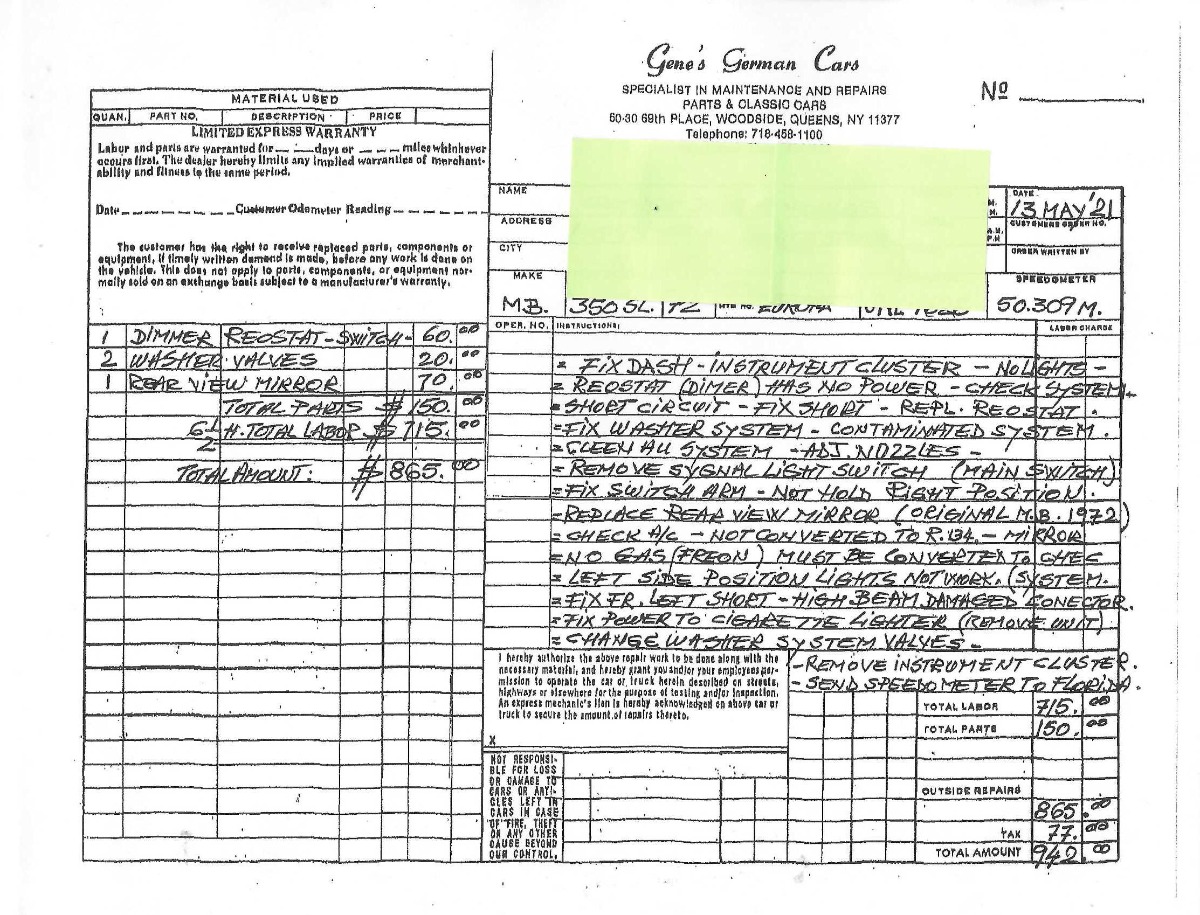 Gene's German Cars
SPECIALIST IN MAINTENANCE AND REPAIRS
PARTS & CLASSIC CARS
60-30 69th PLACE, WOODSIDE, QUEENS, NY 11377
Telephone: 718-458-1100
Nº
MATERIAL USED
QUAN. PART NO. DESCRIPTION PRICE
LIMITED EXPRESS WARRANTY
Labor and parts are warranted for days or miles whichever
occurs first. The dealer hereby limits any implied warranties of merchant-
ability and fitness to the same period.
Date Customer Odometer Reading
The customer has the right to receive replaced parts, components or
equipment, if timely written demand is made, before any work is done on
the vehicle. This does not apply to parts, components, or equipment nor-
mally sold on an exchange basis subject to a manufacturer's warranty.
1 DIMMER REOSTAT-SWITCH- 60.00
2 WASHER VALVES 20.00
1 REAR VIEW MIRROR 70.00
TOTAL PARTS $150.00
6 1/2 H. TOTAL LABOR $715.00
TOTAL AMOUNT: $865.00
NAME
ADDRESS
CITY
MAKE
M.B. 350 SL.
DATE
13 MAY '21
CUSTOMERS ORDER NO.
ORDER WRITTEN BY
SPEEDOMETER
50.309 M.
OPER. NO. INSTRUCTIONS: LABOR CHARGE
= FIX DASH - INSTRUMENT CLUSTER - NO LIGHTS -
= REOSTAT (DIMER) HAS NO POWER - CHECK SYSTEM
= SHORT CIRCUIT - FIX SHORT - REPL. REOSTAT.
= FIX WASHER SYSTEM - CONTAMINATED SYSTEM.
= CLEEN ALL SYSTEM - ADJ. NOZZLES -
= REMOVE SYGNAL LIGHT SWITCH (MAIN SWITCH)
= FIX SWITCH ARM - NOT HOLD RIGHT POSITION.
- REPLACE REAR VIEW MIRROR (ORIGINAL M.B. 1972)
= CHECK A/C - NOT CONVERTED TO R.134. - MIRROR
= NO GAS (FREON) MUST BE CONVERTEN TO CHEC
= LEFT SIDE POSITION LIGHTS NOT WORK. (SYSTEM.
= FIX FR. LEFT SHORT - HIGH BEAM DAMAGED CONECTOR.
= FIX POWER TO CIGARETTE LIGHTER (REMOVE UNIT)
= CHANGE WASHER SYSTEM VALVES -
- REMOVE INSTRUMENT CLUSTER.
- SEND SPEEDOMETER TO FLORIDA.
I hereby authorize the above repair work to be done along with the
necessary material, and hereby grant you and/or your employees per-
mission to operate the car or truck herein described on streets,
highways or elsewhere for the purpose of testing and/or inspection.
An express mechanic's lien is hereby acknowledged on above car or
truck to secure the amount of repairs thereto.
X
NOT RESPONSI-
BLE FOR LOSS
OR DAMAGE TO
CARS OR ARTI-
CLES LEFT IN
CARS IN CASE
OF FIRE, THEFT
OR ANY OTHER
CAUSE BEYOND
OUR CONTROL.
TOTAL LABOR 715.00
TOTAL PARTS 150.00
OUTSIDE REPAIRS
865.00
TAX 77.00
TOTAL AMOUNT 942.00